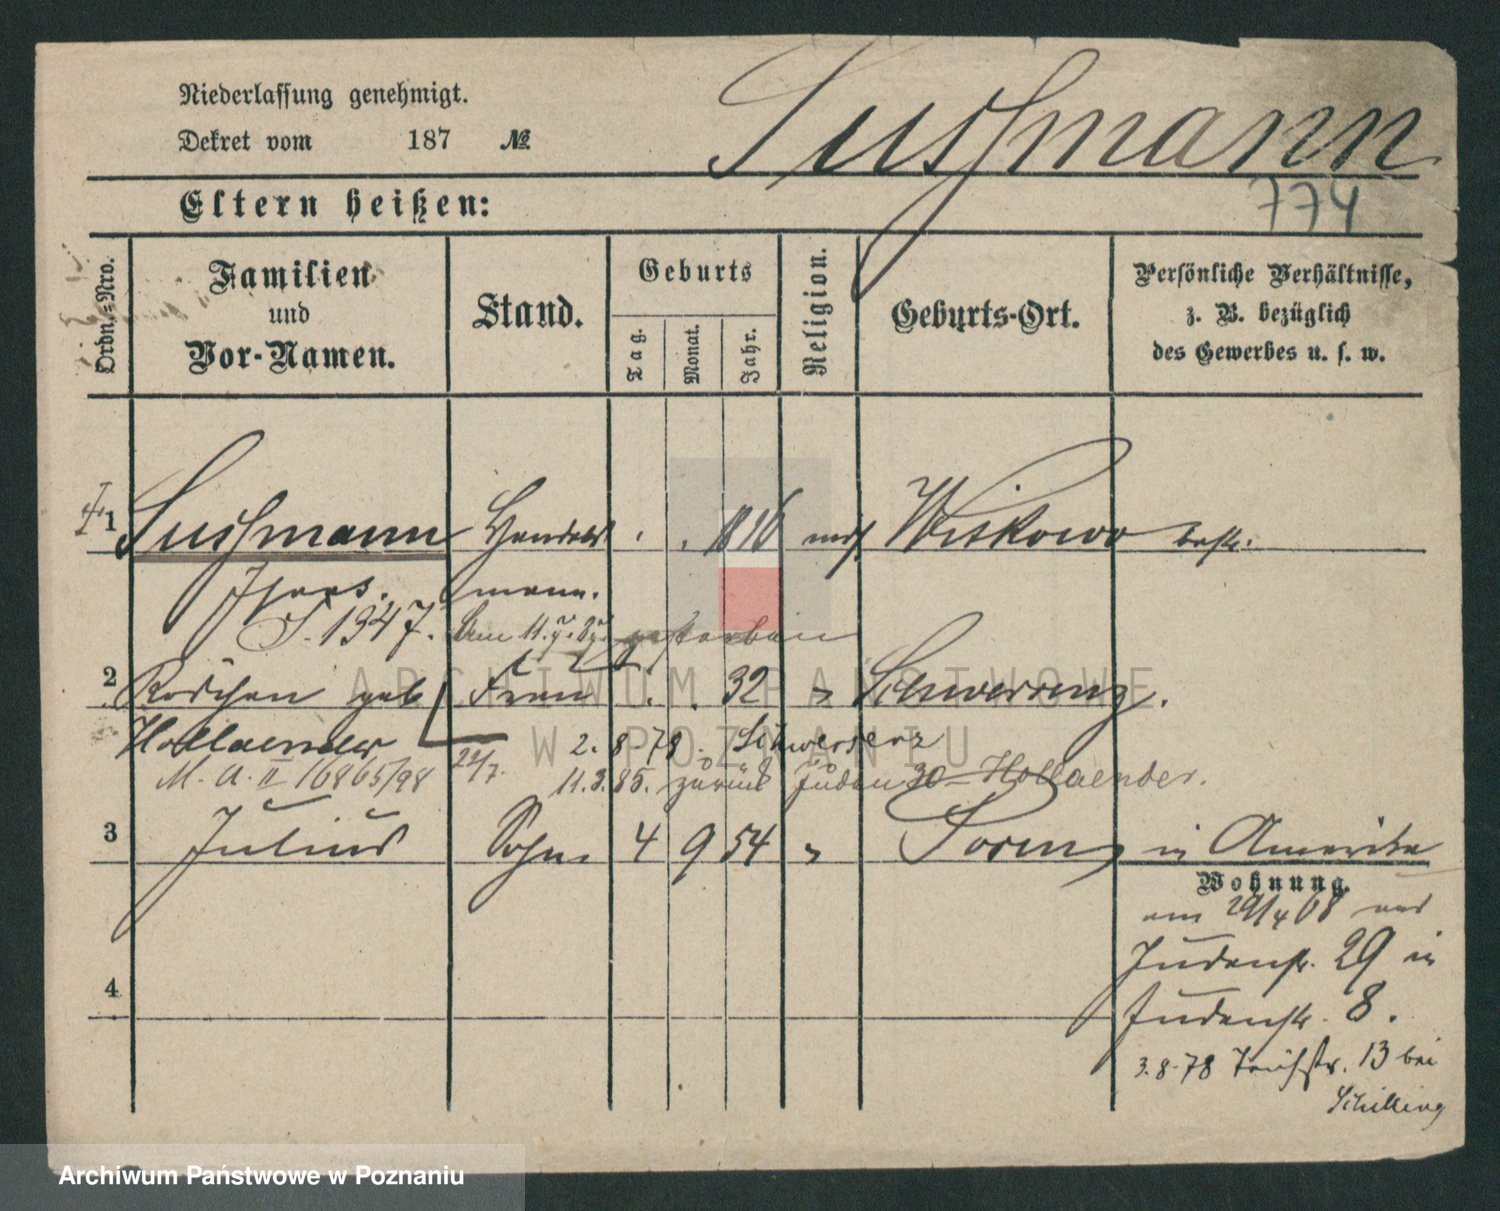 Niederlassung genehmigt.
Dekret vom 187 №
Sussmann
774
Eltern heißen:
Ordn.-Nro.
Familien und Vor-Namen.
Stand.
Geburts
Tag.
Monat.
Jahr.
Religion.
Geburts-Ort.
Persönliche Verhältnisse, z. B. bezüglich des Gewerbes u. s. w.
1 Sussmann Handels 1816 mos Wiskowo
mann.
J. 1347. gestorben
2 Röschen geb Frau 32 " Schwersenz.
Hollaender 2. 8. 78. Schwersenz
M. A. II 16865/98 22/7. 11.3.85. zurück Juden 30 Hollaender.
3 Julius Sohn 4 9 54 " in Amerika
Wohnung.
am 29/4 68 aus
Judenstr. 29 in
4 Judenstr. 8.
3.8.78 13 bei
Schilling
ARCHIWUM PAŃSTWOWE
W POZNANIU
Archiwum Państwowe w Poznaniu